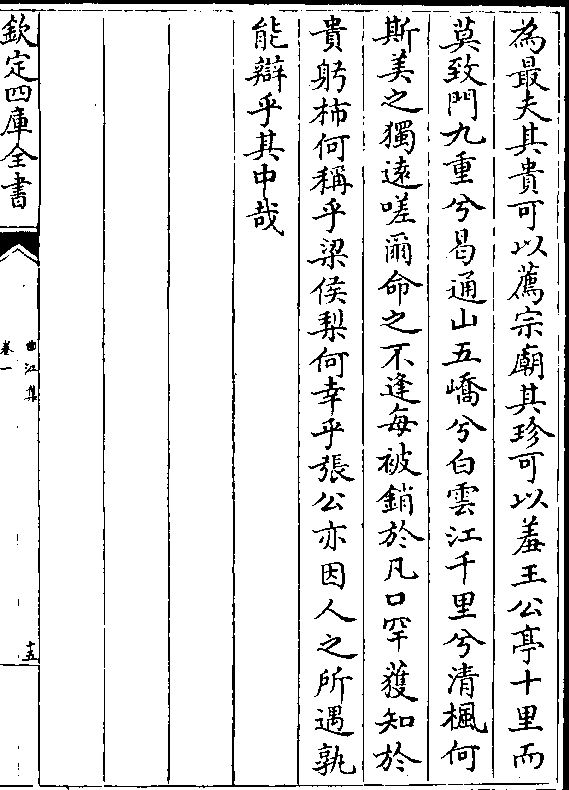 為最夫其貴可以薦宗廟其珍可以羞王公亭十里而
莫致門九重兮曷通山五嶠兮白雲江千里兮清楓何
斯美之獨遠嗟爾命之不逢每被銷於凡口罕獲知於
貴躬柿何稱乎梁侯梨何幸乎張公亦因人之所遇孰
能辯乎其中哉
欽定四庫全書
曲江集
卷一
十五